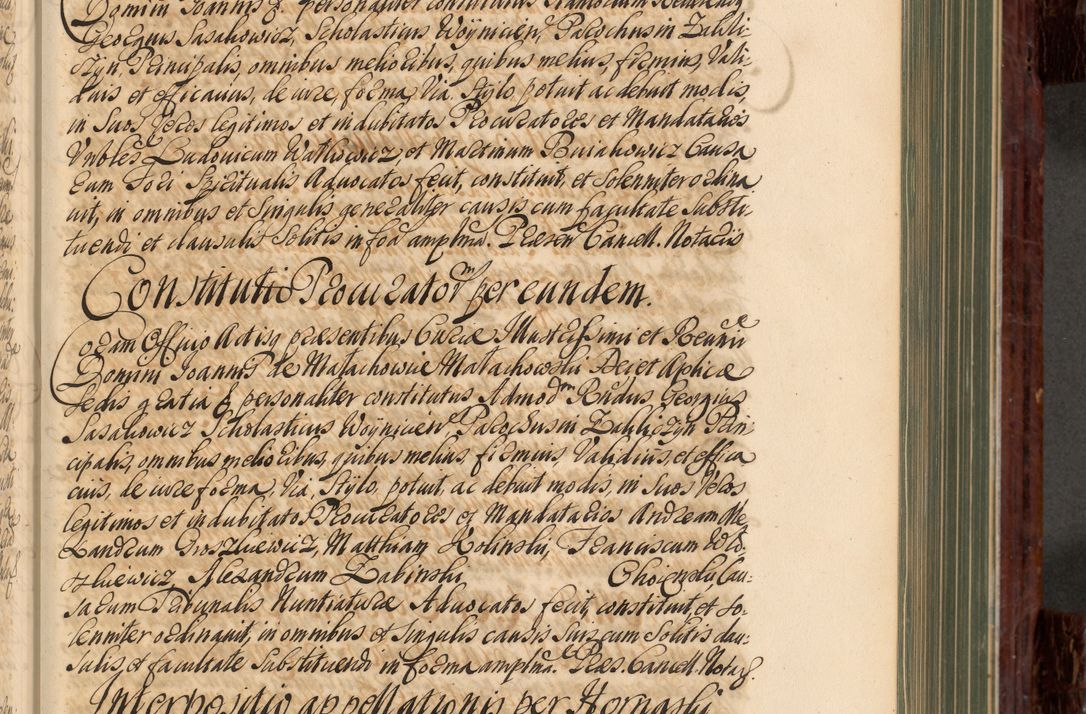 Domini Joannis &. personaliter constitutus
Georgius Sasakowicz, Scholasticus Woynicien, Parochus in Zakli-
czyn, Principalis, omnibus melioribus, quibus melius, firmius, vali-
dius et efficacius, de iure, forma, via, stylo potuit ac debuit modis,
in suos veros legitimos et indubitatos Procuratores et Mandatarios
Nobles Ludovicum Wathowicz, et Martinum Buiakowicz Causa
rum Fori Spiritualis Advocatos fecit, constituit, et solenniter ordina
vit, in omnibus et singulis generaliter causis cum facultate substi-
tuendi et clausulis solitis in foã amplmã. Præsen Cancell. Notariis
Constitutio Procuratorm per eundem.
Coram Officio Actisq præsentibus Curiæ Illustrissimi et Reverñ
Domini Joannis de Małachowice Małachowski Dei et Aplicæ
Sedis gratia & personaliter constitutus Admodm Rndus Georgius
Sasakowicz Scholasticus Woynicien Parochus in Zakliczyn Prin-
cipalis, omnibus melioribus, quibus melius, firmius, validius, et effica
cius, de iure forma, via, stylo, potuit, ac debuit modis, in suos veros
legitimos et indubitatos Procuratores et Mandatarios Andream Ale
xandrum Groszkiewicz, Matthiam Kolinski, Franciscum Wło
szkiewicz, Alexandrum Zabinski Choienski, Cau-
sarum Tribunalis Nuntiaturæ Advocatos fecit, constituit, et so-
lenniter ordinavit, in omnibus et singulis causis suis cum solitis clau-
sulis, et facultate substituendi in forma amplmã. Præs. Cancell. Notar.
Interpositio appellationis per Hornaski